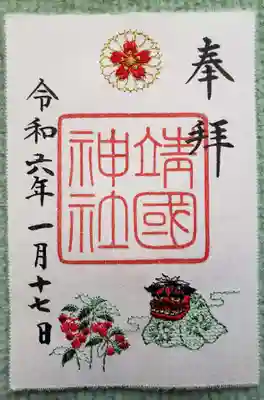 奉拝
靖國
神社
令和六年一月十七日